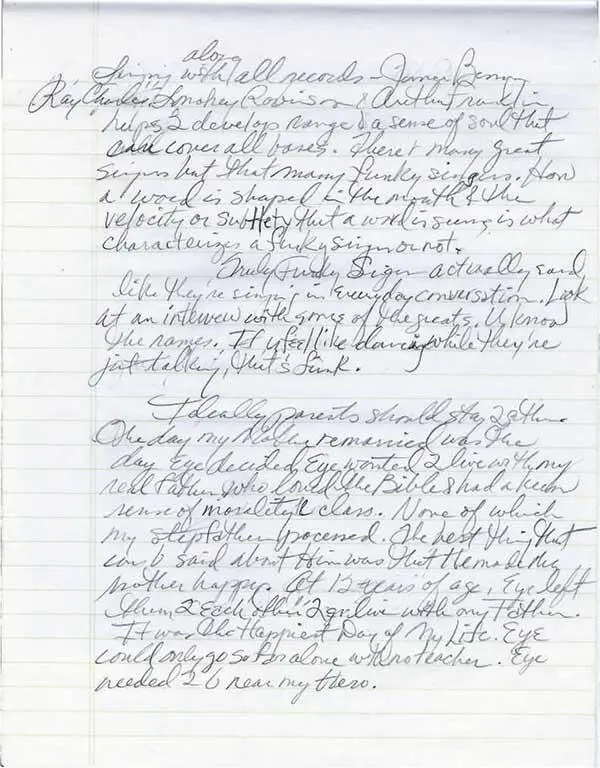 along
Singing with all records – James Brown
Ray Charles, Smokey Robinson & Aretha Franklin
helps 2 develop range & a sense of soul that
can cover all bases. There r many great
singers but that many funky singers. How
a word is shaped in the mouth & the
velocity or subtlety that a word is sung is what
characterizes a funky singer or not.
Truly Funky Singer actually sound
like they're singing in everyday conversation. Look
at an interview with some of the greats. U know
the names. If u feel like dancing while they're
just talking, that's funk.
Ideally parents should stay 2gether.
The day my Mother remarried was the
day Eye decided Eye wanted 2 live with my
real father who loved the Bible & had a keen
sense of morality & class. None of which
my stepfather processed. The best thing that
can b said about Him was that He made My
mother happy. At 12 years of age, Eye left
them 2 each other 2 go live with my Father.
It was the Happiest Day of My Life. Eye
could only go so far alone with no teacher. Eye
needed 2 b near my Hero.